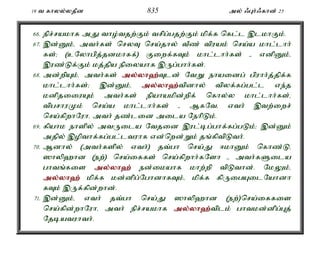 19 வ காலல்லதீன 835 அல் ஃபுர்கான் 25
66. நிச்சயமாக அது வாழ்வதற்கும் வசிப்பதற்கும் மிக்க கெட்ட இடமாகும்.
67. இன்னும், அவர்கள் செலவு செய்தால் வீண் விரயம் செய்ய மாட்டார்
கள்; (உலோபித்தனமாகக்) குறைக்கவும் மாட்டார்கள் - எனினும்,
இரண்டுக்கும் மத்திய நிலையாக இருப்பார்கள்.
68. அன்றியும், அவர்கள் அல்லாஹ்வுடன் வேறு நாயனைப் பிரார்த்திக்க
மாட்டார்கள்; இன்னும், அல்லாஹ்வினால் விலக்கப்பட்ட எந்த
மனிதரையும் அவர்கள் நியாயமின்றிக் கொல்ல மாட்டார்கள்;
விபசாரமும் செய்ய மாட்டார்கள் - ஆகவே, எவர் இவற்றைச்
செய்கிறாரோ, அவர் தண்டனை அடைய நேரிடும்.
69. கியாம நாளில் அவருடைய வேதனை இரட்டிப்பாக்கப்படும்; இன்னும்
அதில் இழிவாக்கப்பட்டவராக என்றென்றும் தங்கிவிடுவர்.
70. ஆனால் (அவர்களில் எவர்) தவ்பா செய்து ஈமானும் கொண்டு,
ஸாலிஹான (நற்) செய்கைகள் செய்கிறார்களோ - அவர்களுடைய
பாவங்களை அல்லாஹ் நன்மையாக மாற்றி விடுவான். மேலும்,
அல்லாஹ் மிக்க மன்னிப்போனாகவும், மிக்க கிருபையுடையோனா
கவும் இருக்கின்றான்.
71. இன்னும், எவர் தவ்பா செய்து ஸாலிஹான (நற்)செய்கைகளை
செய்கின்றாரோ, அவர் நிச்சயமாக அல்லாஹ்விடம் பாவமன்னிப்புத்
தேடியவராவர்.